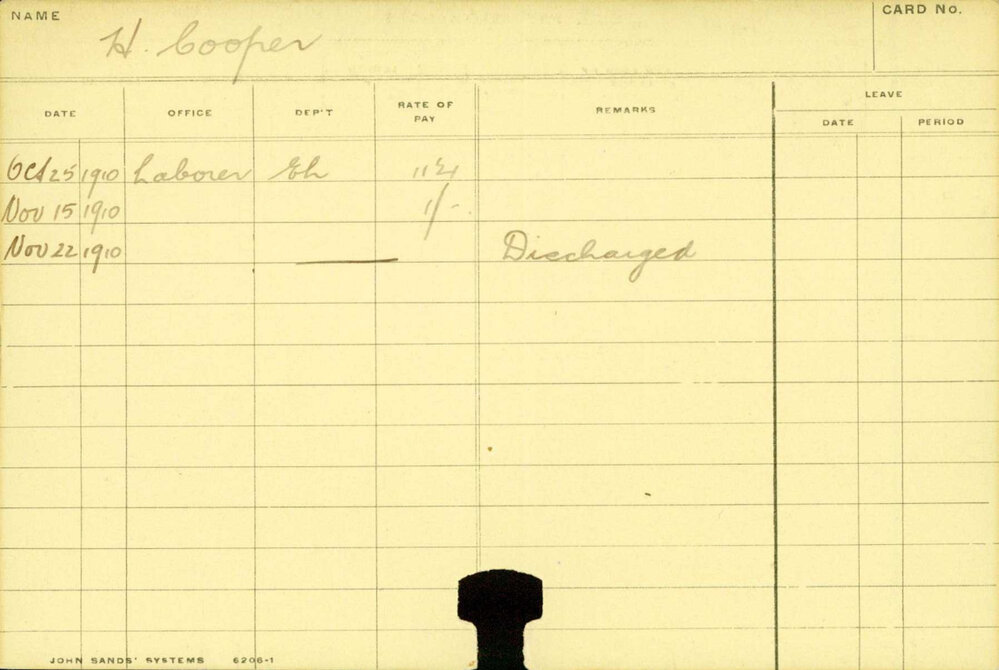 NAME H. Cooper CARD No.
DATE OFFICE DEP'T RATE OF PAY REMARKS LEAVE
DATE PERIOD
Oct 25 1910 Laborer Eh
Nov 15 1910 1/-
Nov 22 1910 Discharged
JOHN SANDS' SYSTEMS 6206-1